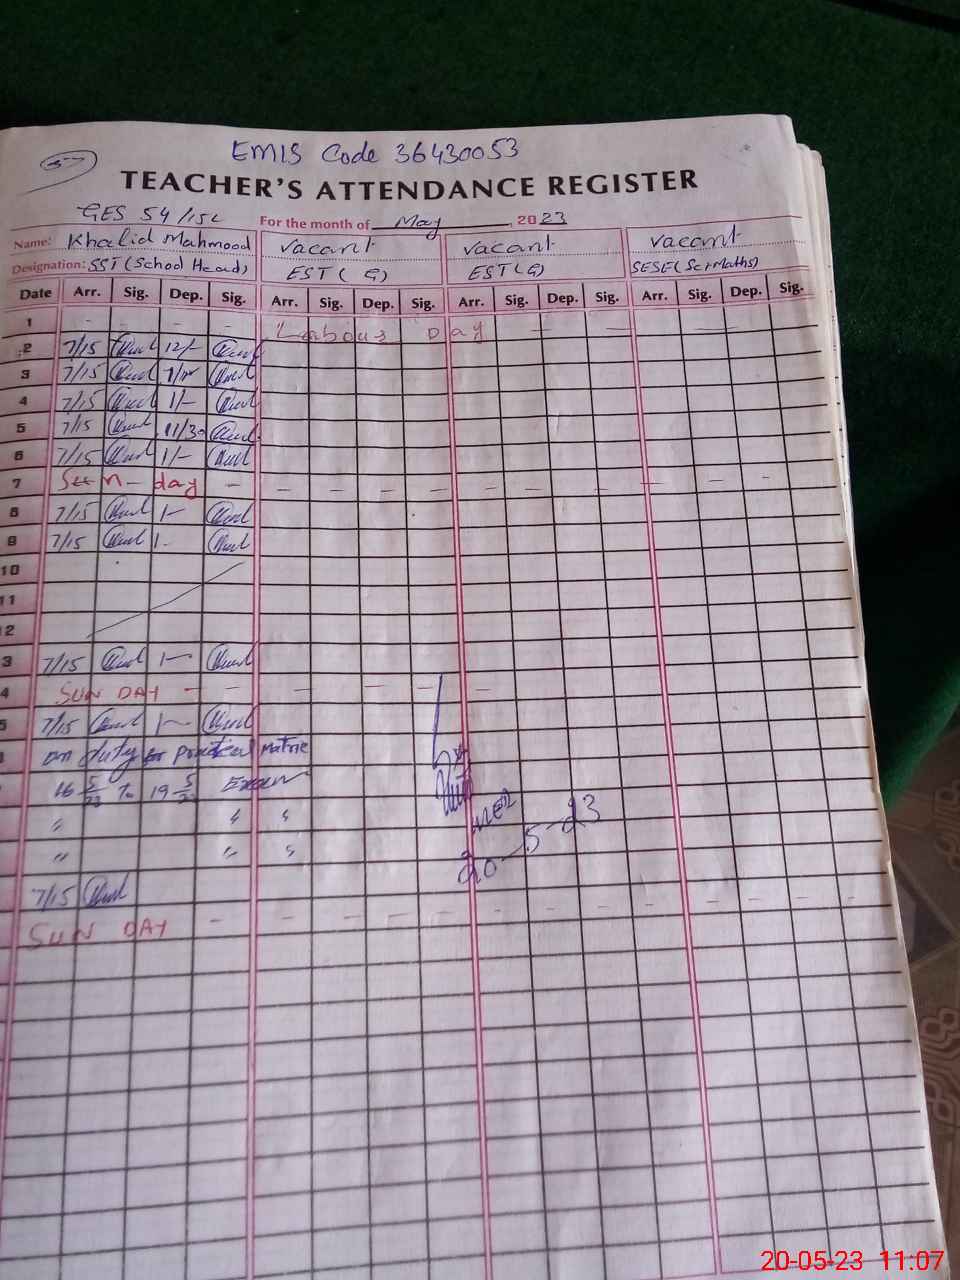 EMIS Code 36430053
37
TEACHER'S ATTENDANCE REGISTER
GES 54/15L For the month of May, 2023
Name: Khalid Mahmood vacant vacant vacant
Designation: SST (School Head) EST (G) EST (G) SESE (Sci-Maths)
Date Arr. Sig. Dep. Sig. Arr. Sig. Dep. Sig. Arr. Sig. Dep. Sig. Arr. Sig. Dep. Sig.
1 - - - - Labour Day - - -
2 7/15 12/-
3 7/15
4 7/15 1/-
5 7/15 11/30
6 7/15 1/-
7 Sun - day - - - - - - - - - - - - -
8 7/15 1-
9 7/15 1-
10
11
12
3 7/15 1-
4 SUN DAY - - - - - - -
5 7/15 1-
on duty for practical Matric
16 5/23 To 19 5/23 Exam
" " "
" " "
7/15
20-5-23
SUN DAY - - - - - - - - - - - -
20-05-23 11:07